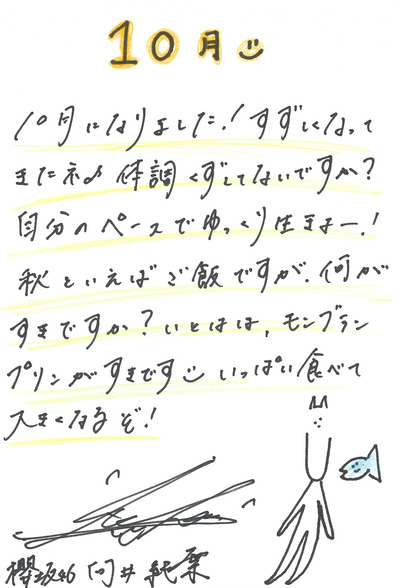 10月
10月になりました！すずしくなって
きたネ♪ 体調くずしてないですか？
自分のペースでゆっくり生きよー！
秋といえばご飯ですが、何が
すきですか？いとはは、モンブラン
プリンがすきです いっぱい食べて
大きくなるぞ！
櫻坂46 向井純葉